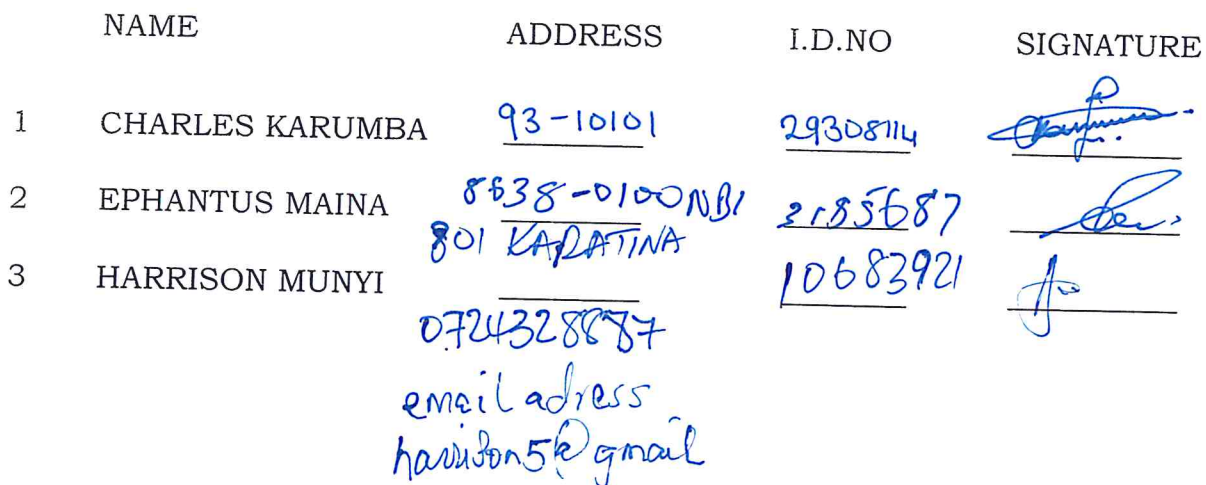 NAME ADDRESS I.D.NO SIGNATURE
1 CHARLES KARUMBA 93-10101 29308114
2 EPHANTUS MAINA 8638-0100 NBI 3185687
801 KARATINA
3 HARRISON MUNYI 10683921
0724328887
email adress
harrison5@gmail